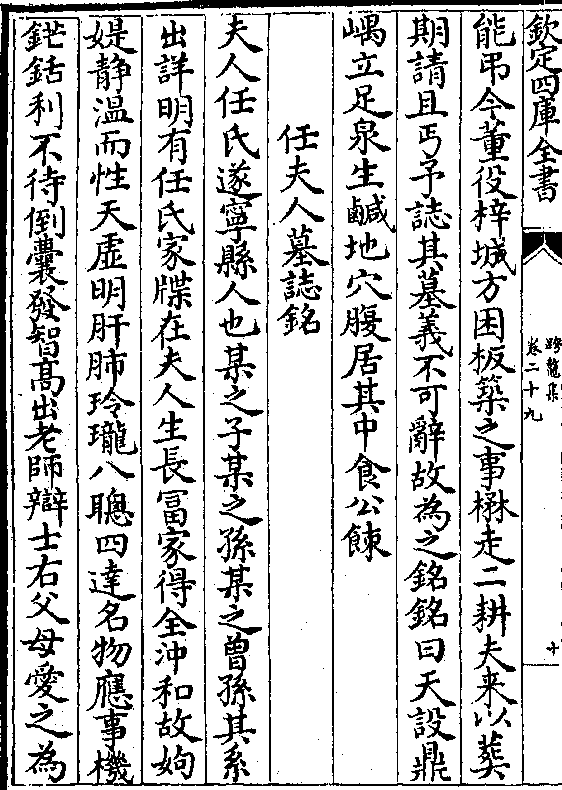 欽定四庫全書
跨鼇集
卷二十九
十
能弔今董役梓城方困板築之事楙走二耕夫来以葬
期請且丐予誌其墓義不可辭故為之銘銘曰天設鼎
嵎立足泉生鹹地穴腹居其中食公餗
任夫人墓誌銘
夫人任氏遂寧縣人也某之子某之孫某之曾孫其系
出詳明有任氏家牒在夫人生長冨家得全沖和故姁
媞静溫而性天虚明肝肺玲瓏八聰四達名物應事機
鋩銛利不待倒囊發智高出老師辯士右父母愛之為